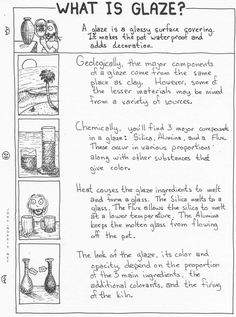 WHAT IS GLAZE?
A glaze is a glossy surface covering.
It makes the pot waterproof and
adds decoration.
Geologically, the major components
of a glaze come from the same
place as clay. However, some of
the lesser materials may be mined
from a variety of sources.
Chemically, you'll find 3 major compounds
in a glaze: Silica, Alumina, and a Flux.
These occur in various proportions
along with other substances that
give color.
Heat causes the glaze ingredients to melt
and form a glass. The Silica melts to a
glass. The Flux allows the silica to melt
at a lower temperature. The Alumina
keeps the molten glass from flowing
off the pot.
The look of the glaze, its color and
opacity, depend on the proportion
of the 3 main ingredients, the
additional colorants, and the firing
of the kiln.